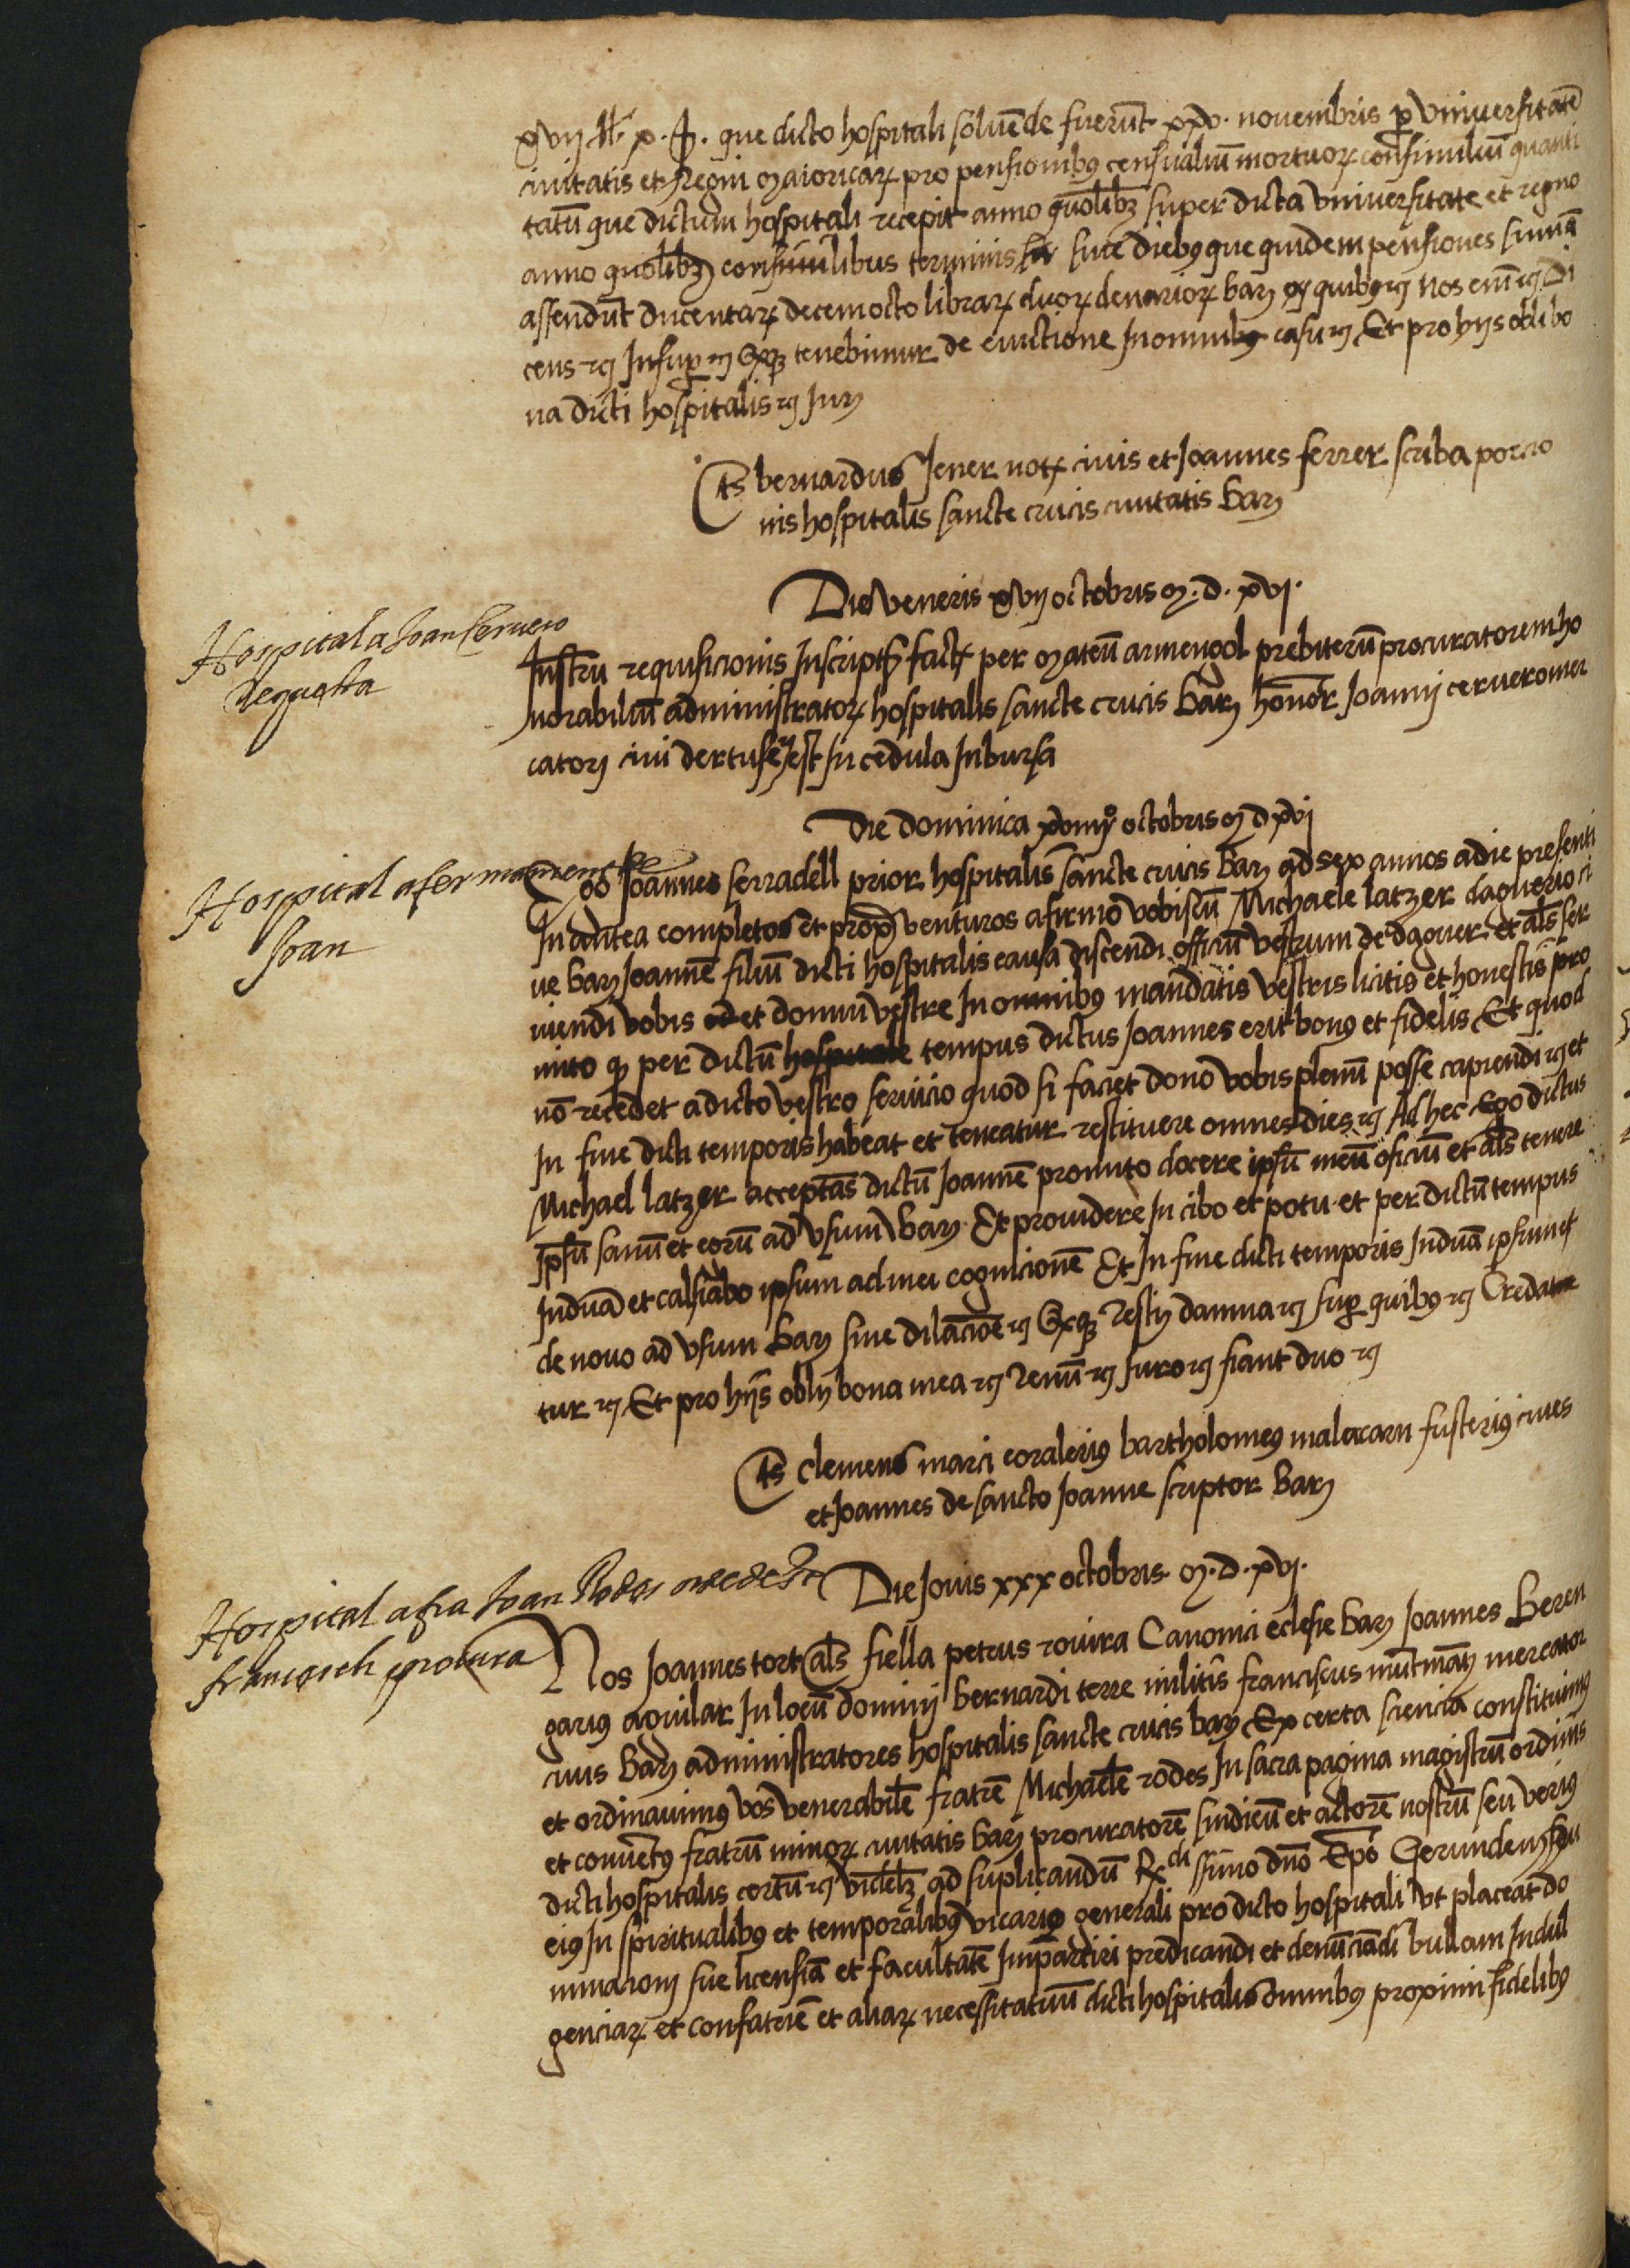 xvij ℔ x . ẞ . que dicto hospitali soluẽde fuerũt xxv . novembris ꝑ vniuersitatẽ
ciuitatis et Regni maioricarꝝ pro pensionibꝯ censualiũ mortuorꝝ consimiliũ quanti
tatũ que dictum hospitali recepit anno quolibꝫ super dicta vniuersitate et regno
anno quolibꝫ consimilibus terminis siue diebꝯ que quidem pensiones sumã
assendũt ducentarꝝ decemocto librarꝝ duorꝝ denariorꝝ barꝫ ex quibꝯ ꝛc Nos em̃ ꝛc Di
cens ꝛc Insuꝑ ꝛc tenebimur de euictione In omnibꝯ casu ꝛc Et pro hijs obli bo
na dicti hospitalis ꝛc Iur̃
Ts bernardus Jener notꝝ ciuis et Joannes ferrer scriba porcio
nis hospitalis sancte crucis ciuitatis barꝫ
Die veneris xvij octobris m . d . xvj .
Hospital a Joan Ceruero
Requesta
Instrũ requisicionis Inscriptꝭ factꝝ per mateũ armengol prebiterũ procuratorem ho
norabiliũ administratorꝝ hospitalis sancte crucis barꝫ honor̃ Joannj ceruero mer
catorj ciui dertusẽ est In cedula In bursa
Die dominica octobris m d xvj
Hospital a fermament de
Joan
Ego Joannes serradell prior hospitalis sancte crucis barꝫ ad sex annos a die presenti
In antea completos et prox̃ venturos afirmo vobiscũ Michaele latzer daguerio ci
ue barꝫ Joannẽ filiũ dicti hospitalis causa discendi officiũ vestrum de daguer et als̃ ser
uiendi vobis et domui vestre In omnibꝯ mandatis vestris licitis et honestis pro
mito ꝙ per dictũ hospitale tempus dictus Joannes erit bonꝯ et fidelis Et quod
nõ recedet a dicto vestro seruicio quod si faciet dono vobis plenũ posse capiendi ꝛc et
In fine dicti temporis habeat et teneatur restituere omnes dies ꝛc Ad hec Ego dictus
Michael latzer acceptãs dictũ Joannẽ promito docere ipsũ meũ oficiũ et als̃ tenere
Ipsũ sanũ et egrũ ad vsum barꝫ Et prouidere In cibo et potu et per dictũ tempus
Induã et calsiabo ipsum ad mei cognicionẽ Et In fine dicti temporis Induã ipsumet
de nouo ad vsum barꝫ sine dilacioẽ ꝛc restij damna ꝛc suꝑ quibꝯ ꝛc Creda
tur ꝛc Et pro hijs oblij bona mea ꝛc Renũ ꝛc Iuro ꝛc fiant duo ꝛc
Ts Clemens marci coraleriꝯ bartholomeꝯ malacarn fusteriꝯ ciues
et Joannes de sancto Joanne scriptor barꝫ
Die Jouis xxx octobris m . d . xvj .
Hospital a fra Joan Rodes
francesch procura
Nos Joannes tort als̃ fiella petrus rouira Canonici eclesie barꝫ Joannes Beren
gariꝯ aguilar In locũ dominj bernardi terre militis franciscus muntmanỹ mercator
ciuis barꝫ administratores hospitalis sancte crucis barꝫ Ex certa sciencia constituimꝯ
et ordinauimꝯ vos venerabilẽ fratrẽ Michaelẽ rodes In sacra pagina magistrũ ordinis
et conuẽtꝯ fratrũ minorꝝ ciutatis barꝫ procuratorẽ sindicũ et actorẽ nostrũ seu veriꝯ
dicti hospitalis certũ ꝛc videlꝫ ad suplicandũ Rͩⁱssimo dño Epõ Gerundenꝭ seu
eiꝯ In spiritualibꝯ et temporalibꝯ vicario generali pro dicto hospitali vt placeat do
minacionj sue licensiã et facultatẽ Impartiri predicandi et denũciãdi bullam Indul
genciarꝝ et confatriẽ et aliarꝝ necessitatiũ dicti hospitalis omnibꝯ proximi fidelibꝯ